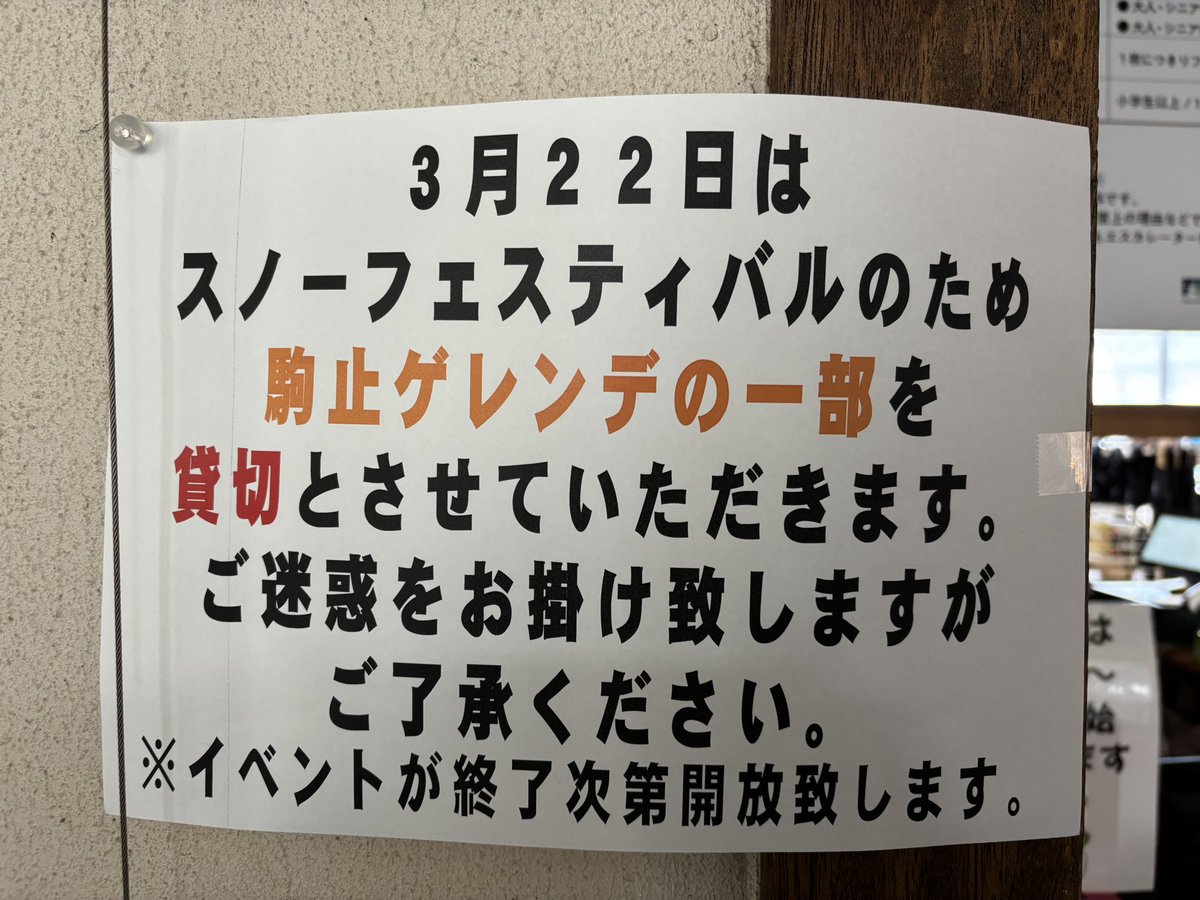 3月22日は
スノーフェスティバルのため
駒止ゲレンデの一部を
貸切とさせていただきます。
ご迷惑をお掛け致しますが
ご了承ください。
※イベントが終了次第開放致します。
●大人・シニア
●大人・シニア
1枚につきリフ
小学生以上/1
です。
上の理由などで
エスカレーター
は
～
始
ます